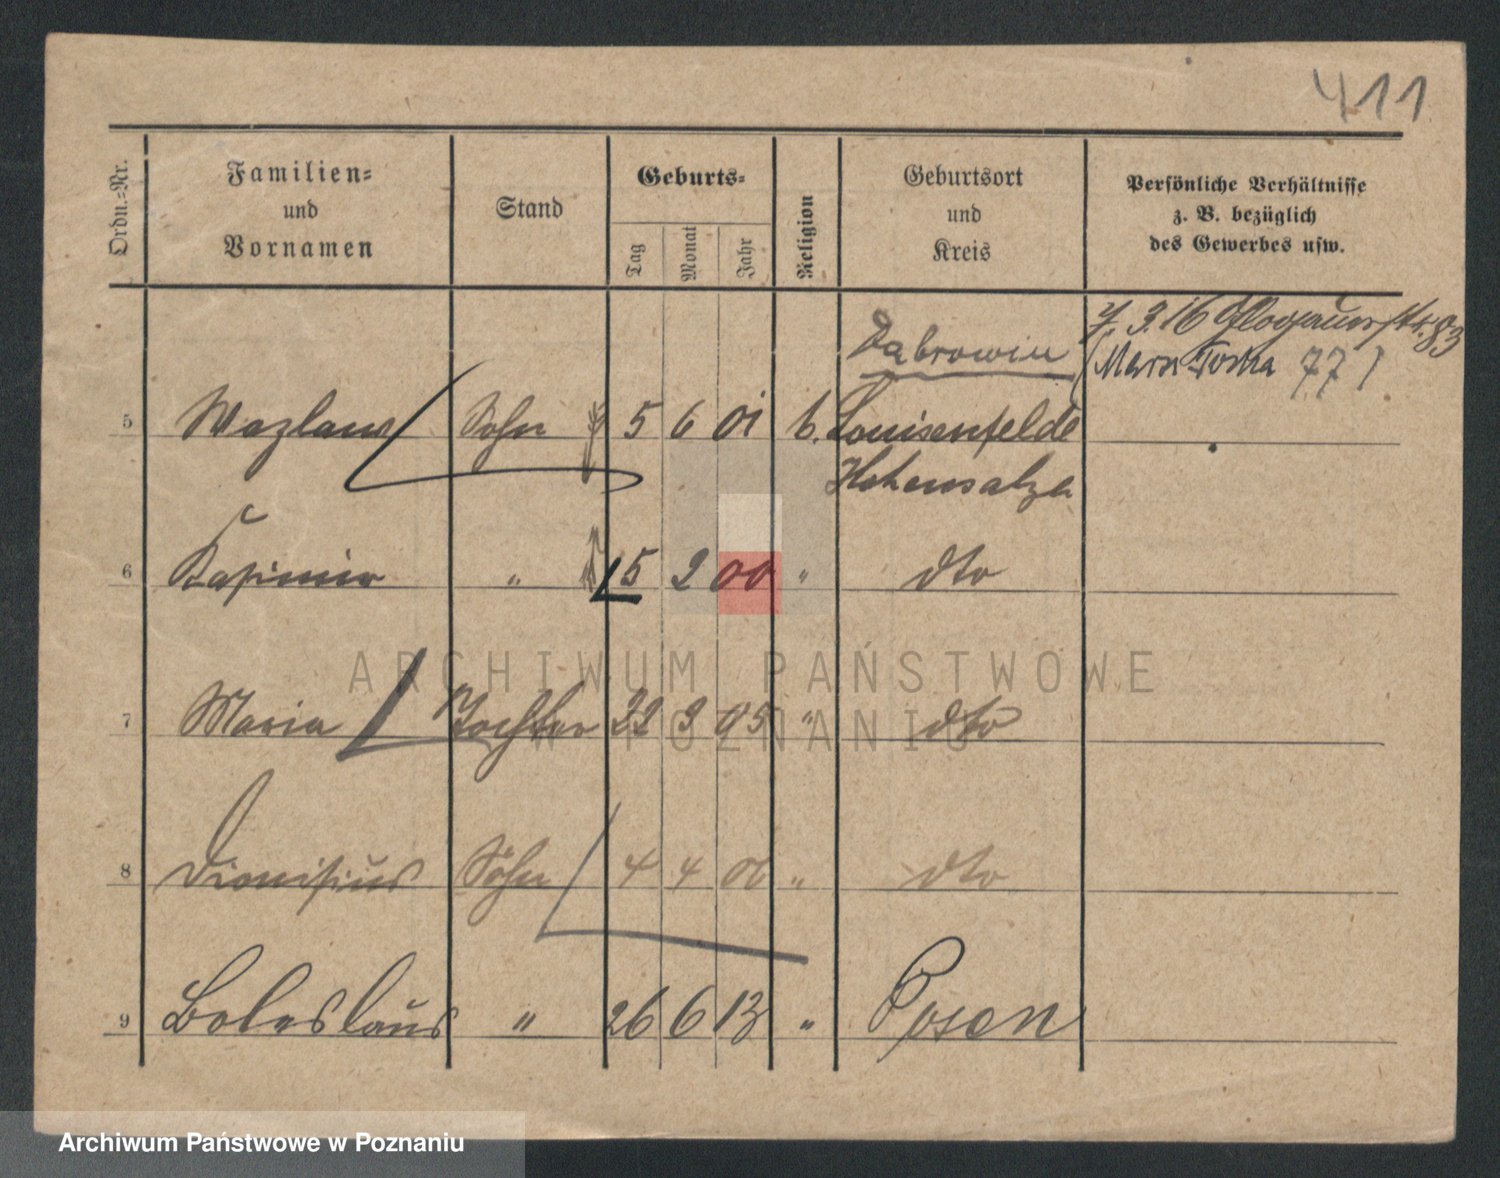 411
Ordn.-Nr.
Familien-
und
Vornamen
Stand
Geburts-
Tag
Monat
Jahr
Religion
Geburtsort
und
Kreis
Persönliche Verhältnisse
z. B. bezüglich
des Gewerbes usw.
7. 3. 16 Glogauerstr. 83
77)
Dąbrowin
5 Wazlaus Sohn 5 6 01 k. Louisenfelde
Hohensalza
6 Kasimir " 15 2 00 " dto
7 Maria Tochter 22 3 05 " dto
8 Dionisius Sohn 4 4 06 " dto
9 Boleslaus " 26 6 13 " Posen
ARCHIWUM PAŃSTWOWE
W POZNANIU
Archiwum Państwowe w Poznaniu